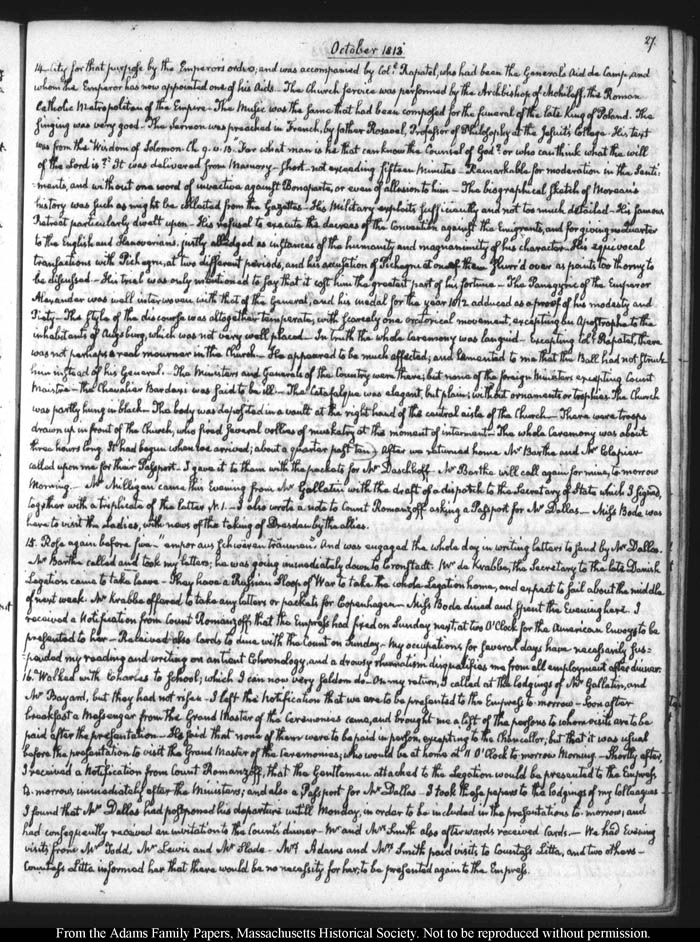 27.
October 1813
14. City for that purpose by the Emperor's orders; and was accompanied by Coll. Rapatel, who had been the General's Aid de Camp, and
whom the Emperor has now appointed one of his Aids. The Church Service was performed by the Archbishop of Mohiloff, the Roman
Catholic Metropolitan of the Empire. The Music was the same that had been composed for the funeral of the late king of Poland. The
singing was very good. The Sermon was preached in French, by father Rosaven, Professor of Philosophy at the Jesuits College. His text
was from the Wisdom of Solomon Ch. 9. v. 13. "For what man is he that can know the Counsel of God? or who can think what the will
of the Lord is?" It was delivered from Memory. Short—not exceeding fifteen minutes—Remarkable for moderation in the Senti-
ments, and without one word of invective against Bonaparte, or even of allusion to him—The biographical sketch of Moreau's
history was such as might be collected from the Gazettes—His Military exploits sufficiently and not too much detailed—His famous
Retreat particularly dwelt upon—His refusal to execute the decrees of the Convention against the Emigrants, and for giving no quarter
to the English and Hanoverians, justly alledged as instances of the humanity and magnanimity of his character—His equivocal
transactions with Pichegru, at two different periods, and his accusation of Pichegru at one of them slurr'd over as points too thorny to
be discussed—His trial was only mentioned to say that it cost him the greatest part of his fortune—The Panegyric of the Emperor
Alexander was well interwoven with that of the General, and his medal for the year 1812 adduced as a proof of his modesty and
Piety—The Style of the discourse was altogether temperate, with scarcely one oratorical movement, excepting an Apostrophe to the
inhabitants of Augsburg, which was not very well placed—In truth the whole Ceremony was languid—Excepting Coll. Rapatel, there
was not perhaps a real mourner in the Church—He appeared to be much affected; and lamented to me that the Ball had not struck
him instead of his General. The Ministers and Generals of the Country were there; but none of the foreign Ministers excepting Count
Maistre—The Chevalier Bardaxi was said to be ill—The Catafalque was elegant, but plain; without ornaments or trophies. The Church
was partly hung in black—The body was deposited in a vault at the right hand of the central aisle of the Church—There were troops
drawn up in front of the Church, who fired several vollies of musketry at the moment of interment—The whole Ceremony was about
three hours long. It had begun when we arrived; about a quarter past ten. After we returned home Mr Barthe and Mr Clapier
called upon me for their Passport. I gave it to them with the packets for Mr Daschkoff. Mr Barthe will call again for mine, to morrow
Morning.—Mr Milligan came this Evening from Mr Gallatin with the draft of a dispatch to the Secretary of State which I signed,
together with a triplicate of the letter N. 1.—I also wrote a note to Count Romanzoff asking a Passport for Mr Dallas—Miss Bode was
here to visit the Ladies, with news of the taking of Dresden by the allies.
15. Rose again before five—"empor aus schweren träumen." And was engaged the whole day in writing letters to send by Mr Dallas.
Mr Barthe called and took my letters; he was going immediately down to Cronstadt. Mr de Krabbe, the Secretary to the late Danish
Legation came to take leave—They have a Russian Sloop of War to take the whole Legation home, and expect to sail about the middle
of next week. Mr Krabbe offered to take any letters or packets for Copenhagen—Miss Bode dined and spent the Evening here. I
received a Notification from Count Romanzoff, that the Empress had fixed on Sunday next, at two O'Clock for the American Envoys to be
presented to her—Received also Cards to dine with the Count on Sunday.—My occupations, for several days have necessarily sus-
pended my reading and writing on antient Chronology, and a drowsy rheumatism disqualifies me from all employment after dinner.
16. Walked with Charles to School; which I can now very seldom do. On my return, I called at the lodgings of Mr Gallatin, and
Mr Bayard, but they had not risen. I left the Notification that we are to be presented to the Empress to-morrow—Soon after
breakfast a Messenger from the Grand Master of the Ceremonies came, and brought me a list of the persons to whom visits are to be
paid after the presentation—He said that none of them were to be paid in person, excepting to the Chancellor; but that it was usual
before the presentation to visit the Grand Master of the Ceremonies; who would be at home at 11 O'Clock to morrow Morning—Shortly after,
I received a Notification from Count Romanzoff, that the Gentlemen attached to the Legation would be presented to the Empress
to-morrow, immediately after the Ministers; and also a Passport for Mr Dallas—I took these papers to the lodgings of my Colleagues
I found that Mr Dallas had postponed his departure untill Monday, in order to be included in the presentations to-morrow; and
had consequently received an invitation to the Count's dinner—Mr and Mrs Smith also afterwards received Cards.—We had Evening
visits from Mr Todd, Mr Lewis and Mr Slade—Mrs Adams and Mrs Smith paid visits to Countess Litta, and two others—
Countess Litta informed her that there would be no necessity for her, to be presented again to the Empress.
From the Adams Family Papers, Massachusetts Historical Society. Not to be reproduced without permission.